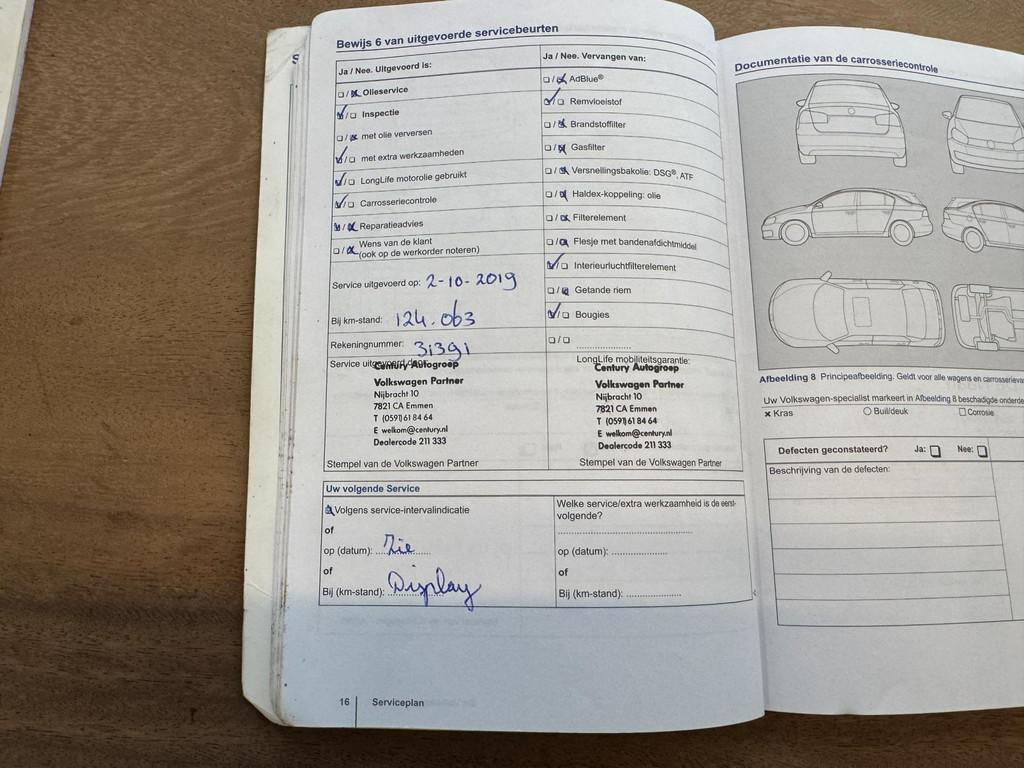 Bewijs 6 van uitgevoerde servicebeurten
Ja / Nee. Uitgevoerd is:
Olieservice
Inspectie
met olie verversen
met extra werkzaamheden
LongLife motorolie gebruikt
Carrosseriecontrole
Reparatieadvies
Wens van de klant
(ook op de werkorder noteren)
Service uitgevoerd op: 2-10-2019
Bij km-stand: 124.063
Rekeningnummer: 313gi
Service uitgevoerd door:
Century Autogroep
Volkswagen Partner
Nijbracht 10
7821 CA Emmen
T (0591) 61 84 64
E welkom@century.nl
Dealercode 211 333
Stempel van de Volkswagen Partner
Ja / Nee. Vervangen van:
AdBlue®
Remvloeistof
Brandstoffilter
Gasfilter
Versnellingsbakolie: DSG®, ATF
Haldex-koppeling: olie
Filterelement
Flesje met bandenafdichtmiddel
Interieurluchtfilterelement
Getande riem
Bougies
LongLife mobiliteitsgarantie:
Century Autogroep
Volkswagen Partner
Nijbracht 10
7821 CA Emmen
T (0591) 61 84 64
E welkom@century.nl
Dealercode 211 333
Stempel van de Volkswagen Partner
Uw volgende Service
Volgens service-intervalindicatie
of
op (datum): Zie
of
Bij (km-stand): Display
Welke service/extra werkzaamheid is de eerst-
volgende?
op (datum):
of
Bij (km-stand):
16 Serviceplan
Documentatie van de carrosseriecontrole
Afbeelding 8 Principeafbeelding. Geldt voor alle wagens en
Uw Volkswagen-specialist markeert in Afbeelding 8 beschadigde
x Kras
Buil/deuk
Corrosie
Defecten geconstateerd? Ja: Nee:
Beschrijving van de defecten: